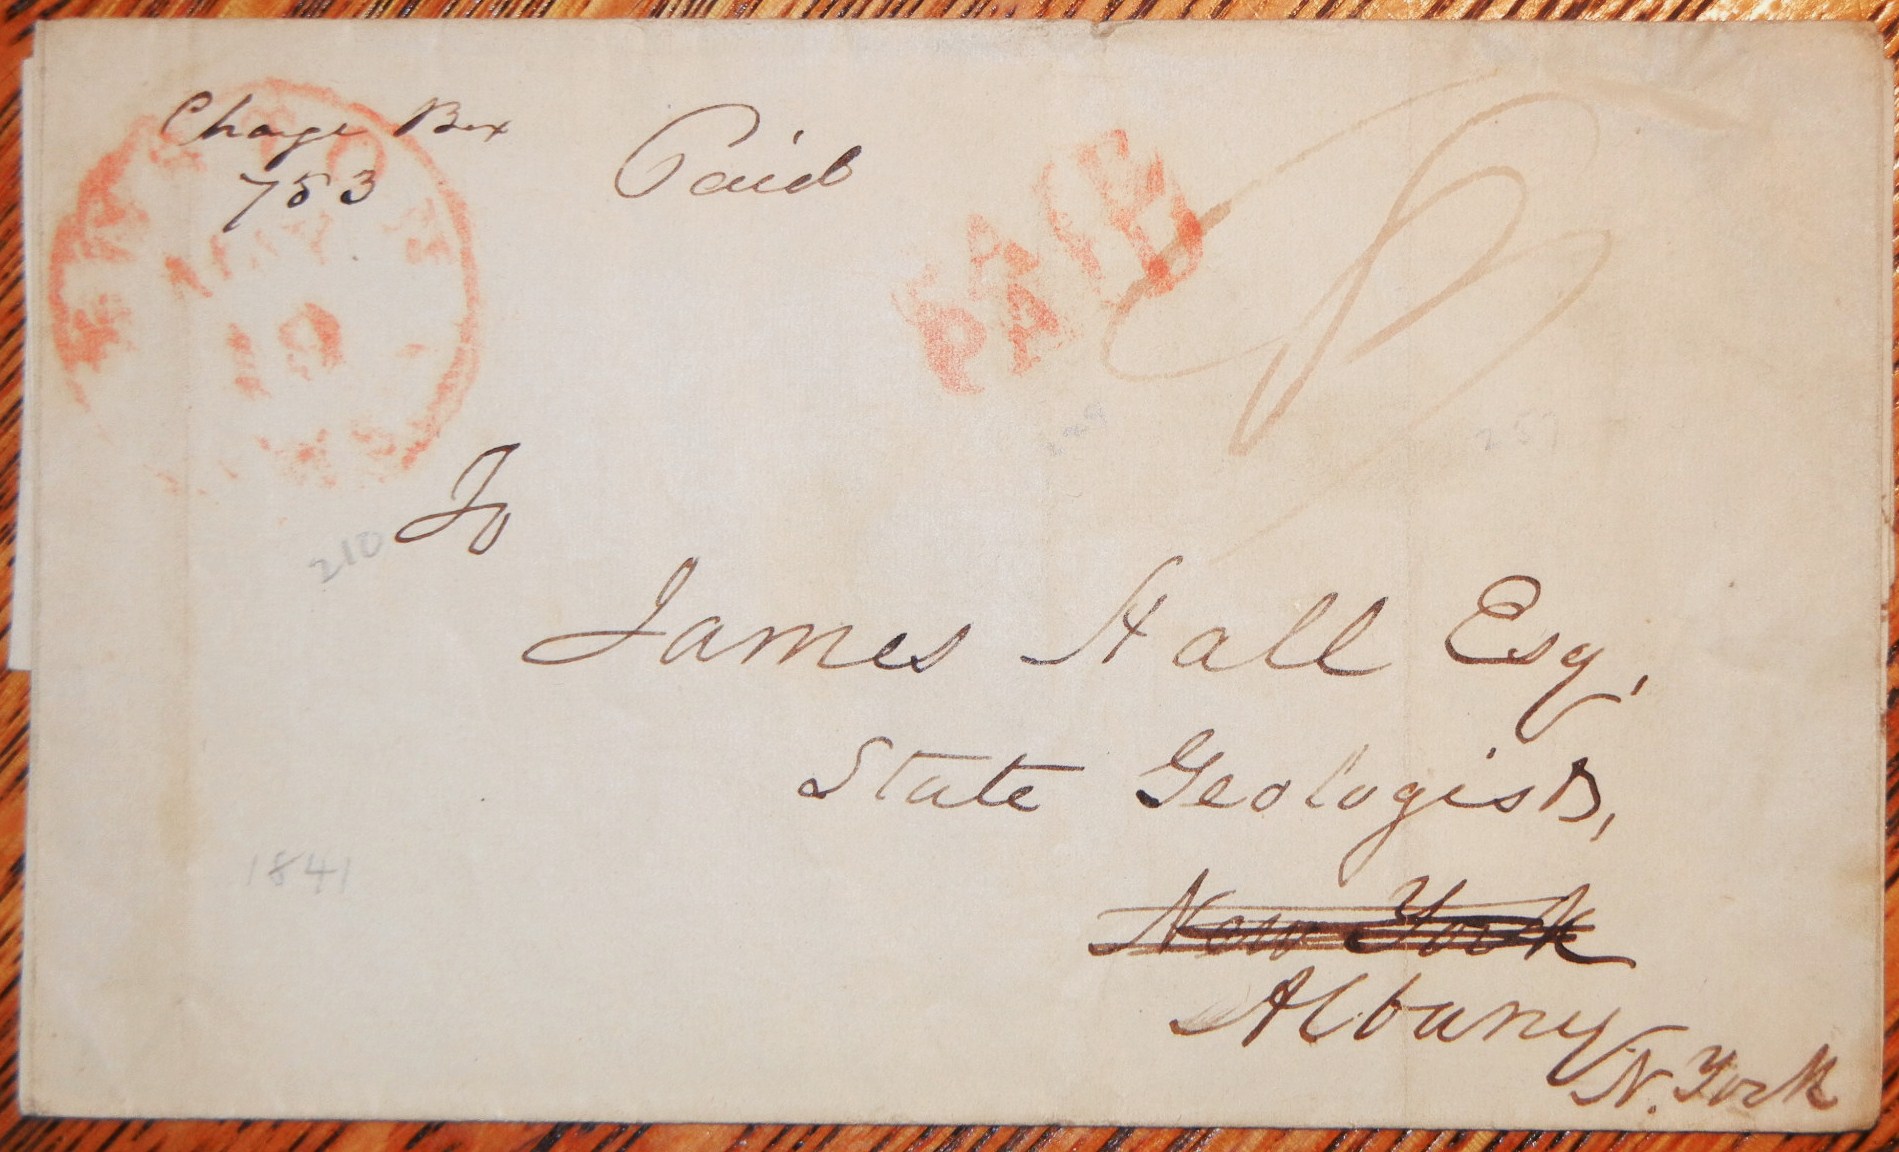 Charge Box
753
Paid
PAID
PAID
19
210
To
James Hall Esq,
State Geologist,
1841
New York
Albany
N. York